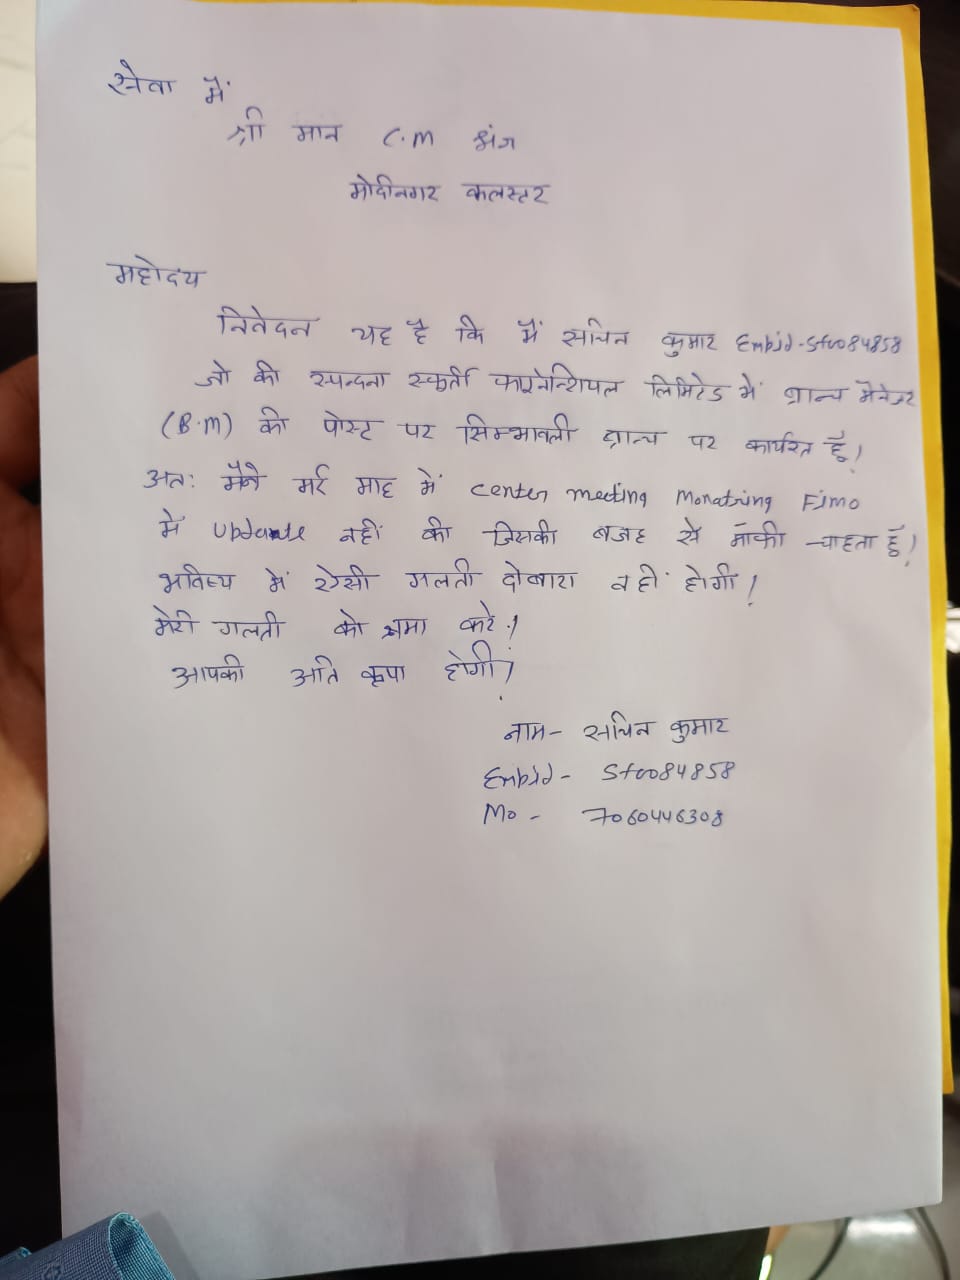 सेवा में
श्री मान C.M
मोदीनगर कलस्टर
महोदय
निवेदन यह है कि मैं सचिन कुमार Embid-Sf0084858
जो की स्पन्दना स्फूर्ती फाइनेन्शियल लिमिटेड में ब्रान्च मैनेजर
(B.M) की पोस्ट पर सिम्भावली ब्रान्च पर कार्यरत हूँ।
अतः मैंने मई माह में center meeting Monatring Fimo
में Updante नहीं की जिसकी बजह से माँफी चाहता हूँ।
भविष्य में ऐसी गलती दोबारा नहीं होगी।
मेरी गलती को क्षमा करे।
आपकी अति कृपा होगी।
नाम- सचिन कुमार
Embid- Sf0084858
Mo - 7060446308